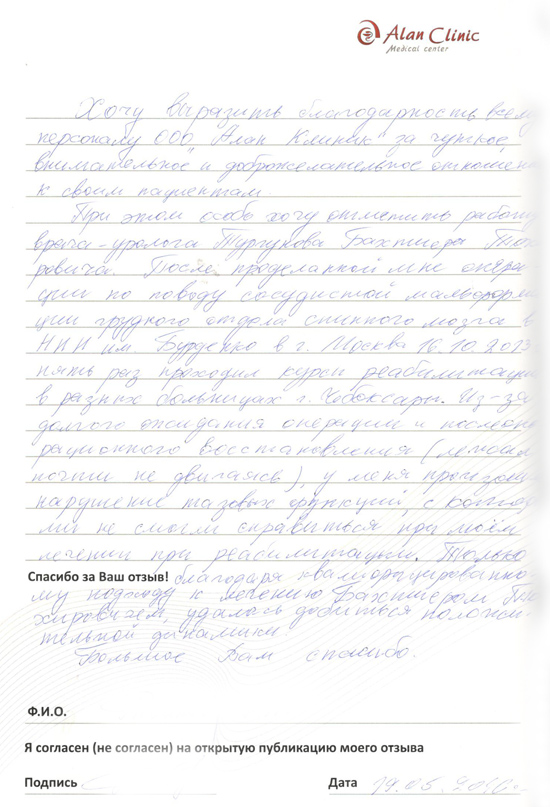 Alan Clinic
Medical center
Хочу выразить благодарность всему
персоналу ООО "Алан Клиник" за чуткое,
внимательное и доброжелательное отношение
к своим пациентам.
При этом особо хочу отметить работу
врача-уролога Тургунова Бахтиера
ровича. После проделанной мне опера-
ции по поводу сосудистой мальформа
ции грудного отдела спинного мозга в
НИИ им. Бурденко в г. Москва 16.10.2013
пять раз проходил курсы реабилитации
в разных больницах г. Чебоксары. Из-за
долгого ожидания операции и послеопе
рационного восстановления (лежал
почти не двигаясь), у меня произошло
нарушение тазовых функций, с которы
ми не смогли справиться при моём
лечении при реабилитации. Только
Спасибо за Ваш отзыв! благодаря квалифицированно-
му подходу к лечению Бахтиером
хировичем, удалось добиться положи-
тельной динамики.
Большое Вам спасибо.
Ф.И.О.
Я согласен (не согласен) на открытую публикацию моего отзыва
Подпись Дата 19.05.